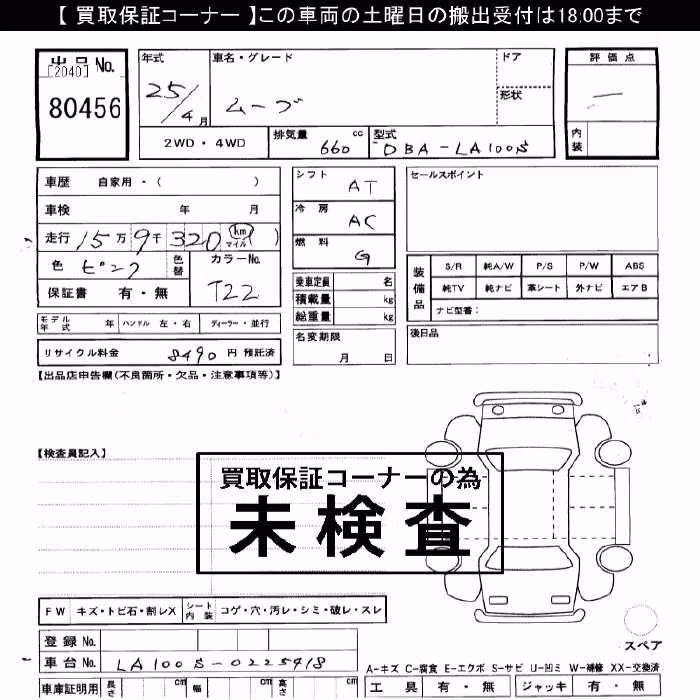 【 買取保証コーナー 】この車両の土曜日の搬出受付は18:00まで
出品 No.
[2040]
80456
年式
25/4月
車名・グレード
ムーブ
ドア
形状
2WD ・ 4WD
排気量
660 cc
型式
DBA-LA100S
評価点
内装
車歴 自家用・( )
車検 年 月
走行 15万9千320 (km マイル)
色 ピンク
色替
カラーNo.
T22
保証書 有・無
モデル年式 年 ハンドル 左・右 ディーラー・並行
リサイクル料金 8490 円 預託済
シフト AT
冷房 AC
燃料 G
乗車定員 名
積載量 kg
総重量 kg
名変期限
月 日
セールスポイント
装備品
S/R 純A/W P/S P/W ABS
純TV 純ナビ 革シート 外ナビ エアB
ナビ型番:
後日品
【出品店申告欄(不良箇所・欠品・注意事項等)】
【検査員記入】
買取保証コーナーの為
未検査
FW キズ・トビ石・割レX シート内装 コゲ・穴・汚レ・シミ・破レ・スレ
登録 No.
車台 No. LA100S-0225918
車庫証明用 長さ cm 幅 cm 高さ cm
スペア
A-キズ C-腐食 E-エクボ S-サビ U-凹ミ W-補修 XX-交換済
工具 有・無 ジャッキ 有・無